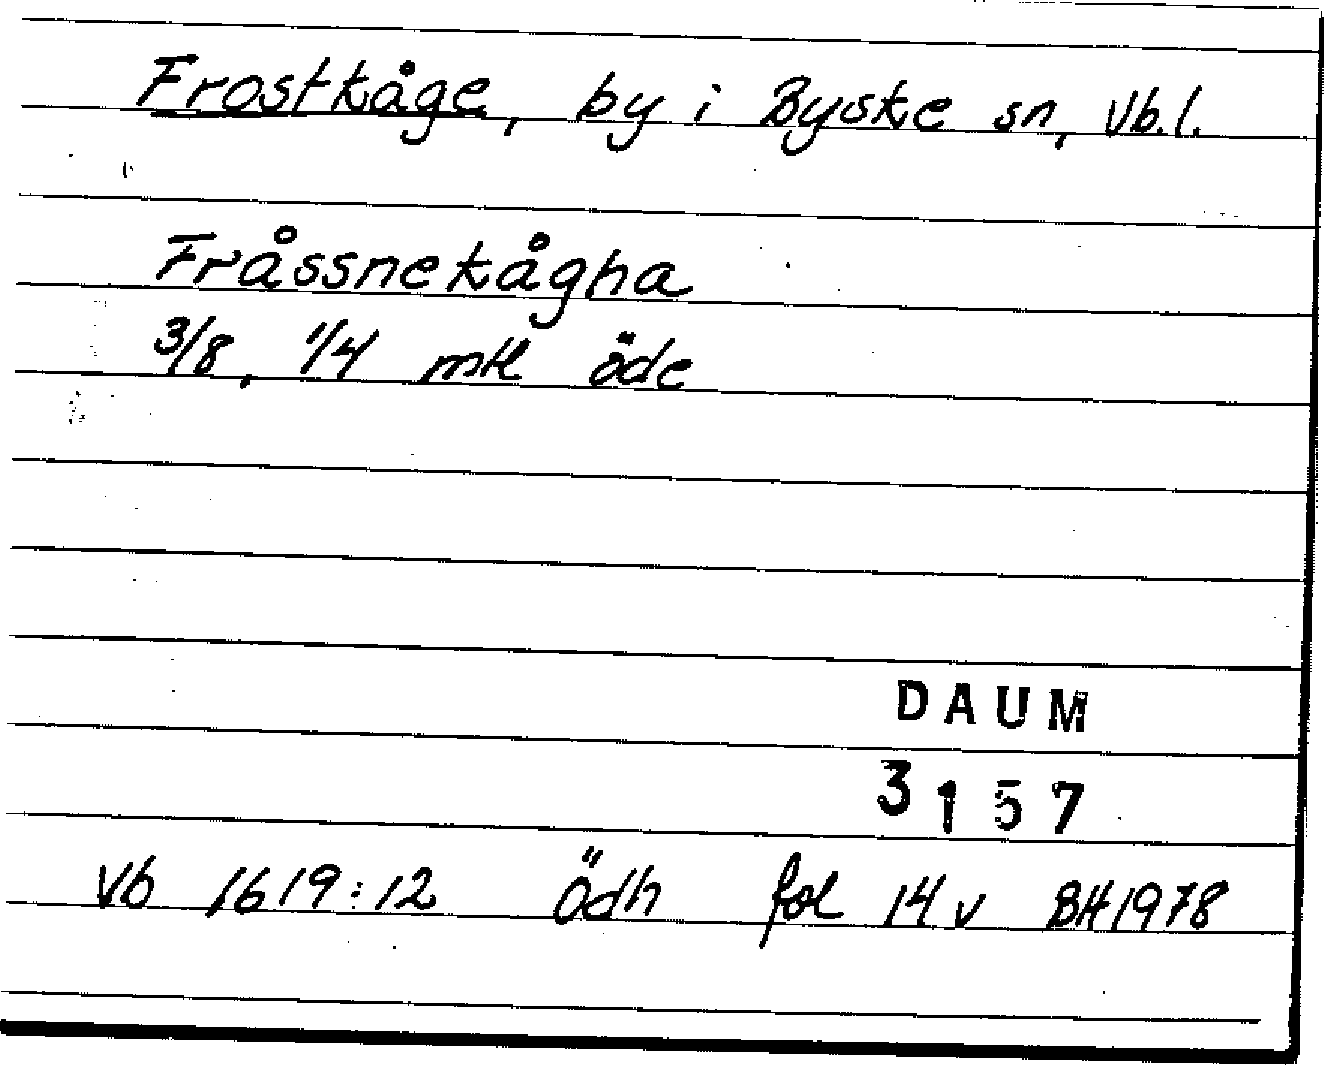 Frostkåge, by i Byske sn, Vb.l.
Fråssnekågha
3/8, 1/4 mtl öde
DAUM
3157
Vb 1619:12 Ödh fol 14 v BH 1978